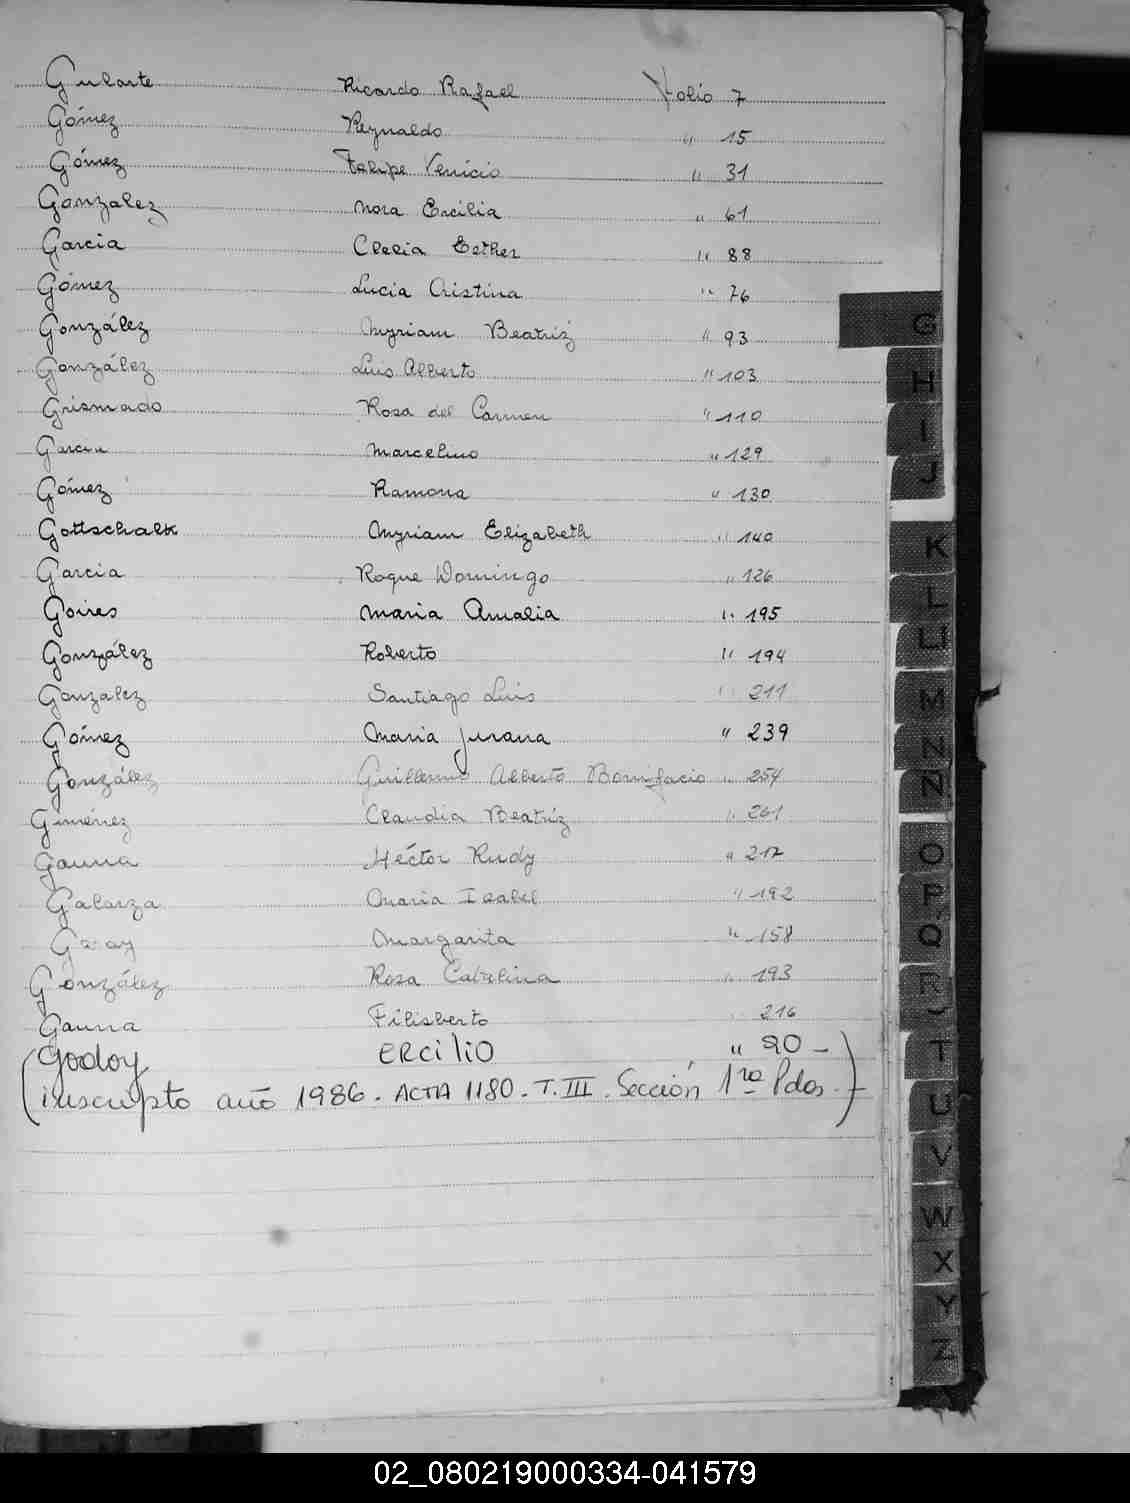 Gularte Ricardo Rafael Folio 7
Gómez Reynaldo " 15
Gómez Felipe Venicio " 31
Gonzalez Nora Ercilia " 61
Garcia Clelia Esther " 88
Gómez Lucia Cristina " 76
González Myriam Beatriz " 93
González Luis Alberto " 103
Grismado Rosa del Carmen " 110
Garcia Marcelino " 129
Gómez Ramona " 130
Gottschalk Myriam Elizabeth " 140
Garcia Roque Domingo " 126
Goires Maria Amalia " 195
González Roberto " 194
Gonzalez Santiago Luis " 211
Gómez Maria Juana " 239
González Guillermo Alberto Bonifacio " 254
Gimenez Claudia Beatriz " 261
Gauna Héctor Rudy " 217
Galarza Maria Isabel " 192
Garay Margarita " 158
González Rosa Catalina " 193
Gauna Filisberto " 216
(Godoy ERCiliO " 20 -
inscripto año 1986. ACTA 1180 - T. III. Sección 1ra Pdos.)
G
H
I
J
K
L
LL
M
N
Ñ
O
P
Q
R
T
U
V
W
X
Y
Z
02_080219000334-041579